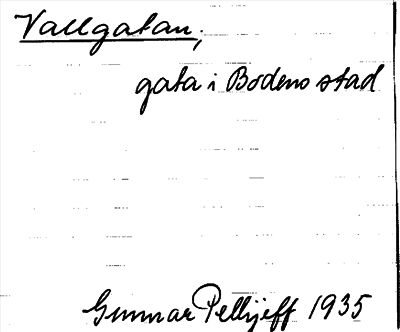 Vallgatan,
gata i Bodens stad
Gunnar Pellijeff 1935